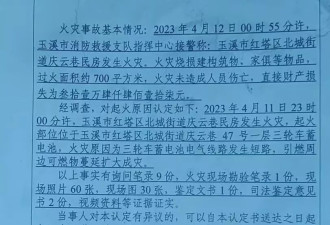 火灾事故基本情况：2023 年 4 月 12 日 00 时 55 分许，
玉溪市消防救援支队指挥中心接警称：玉溪市红塔区北城街
道庆云巷民房发生火灾。火灾烧损建构筑物、家俱等物品，
过火面积约 700 平方米，火灾未造成人员伤亡，直接财产损
失为叁拾壹万肆仟肆佰壹拾圆元。
经调查，对起火原因认定如下：2023 年 4 月 11 日 23
时 00 分许，玉溪市红塔区北城街道庆云巷民房发生火灾，起火
部位位于玉溪市红塔区北城街道庆云巷 47 号一层三轮车蓄
电池，火灾原因为三轮车蓄电池电气线路发生短路，引燃周
边可燃物蔓延扩大成灾。
以上事实有询问笔录 9 份、火灾现场勘验笔录 1 份、现
场照片 60 张、现场图 30 张、鉴定文书 1 份，司法鉴定意见
书 2 份，视频资料等证据证实。
当事人对本认定有异议的，可以自本认定书送达之日起